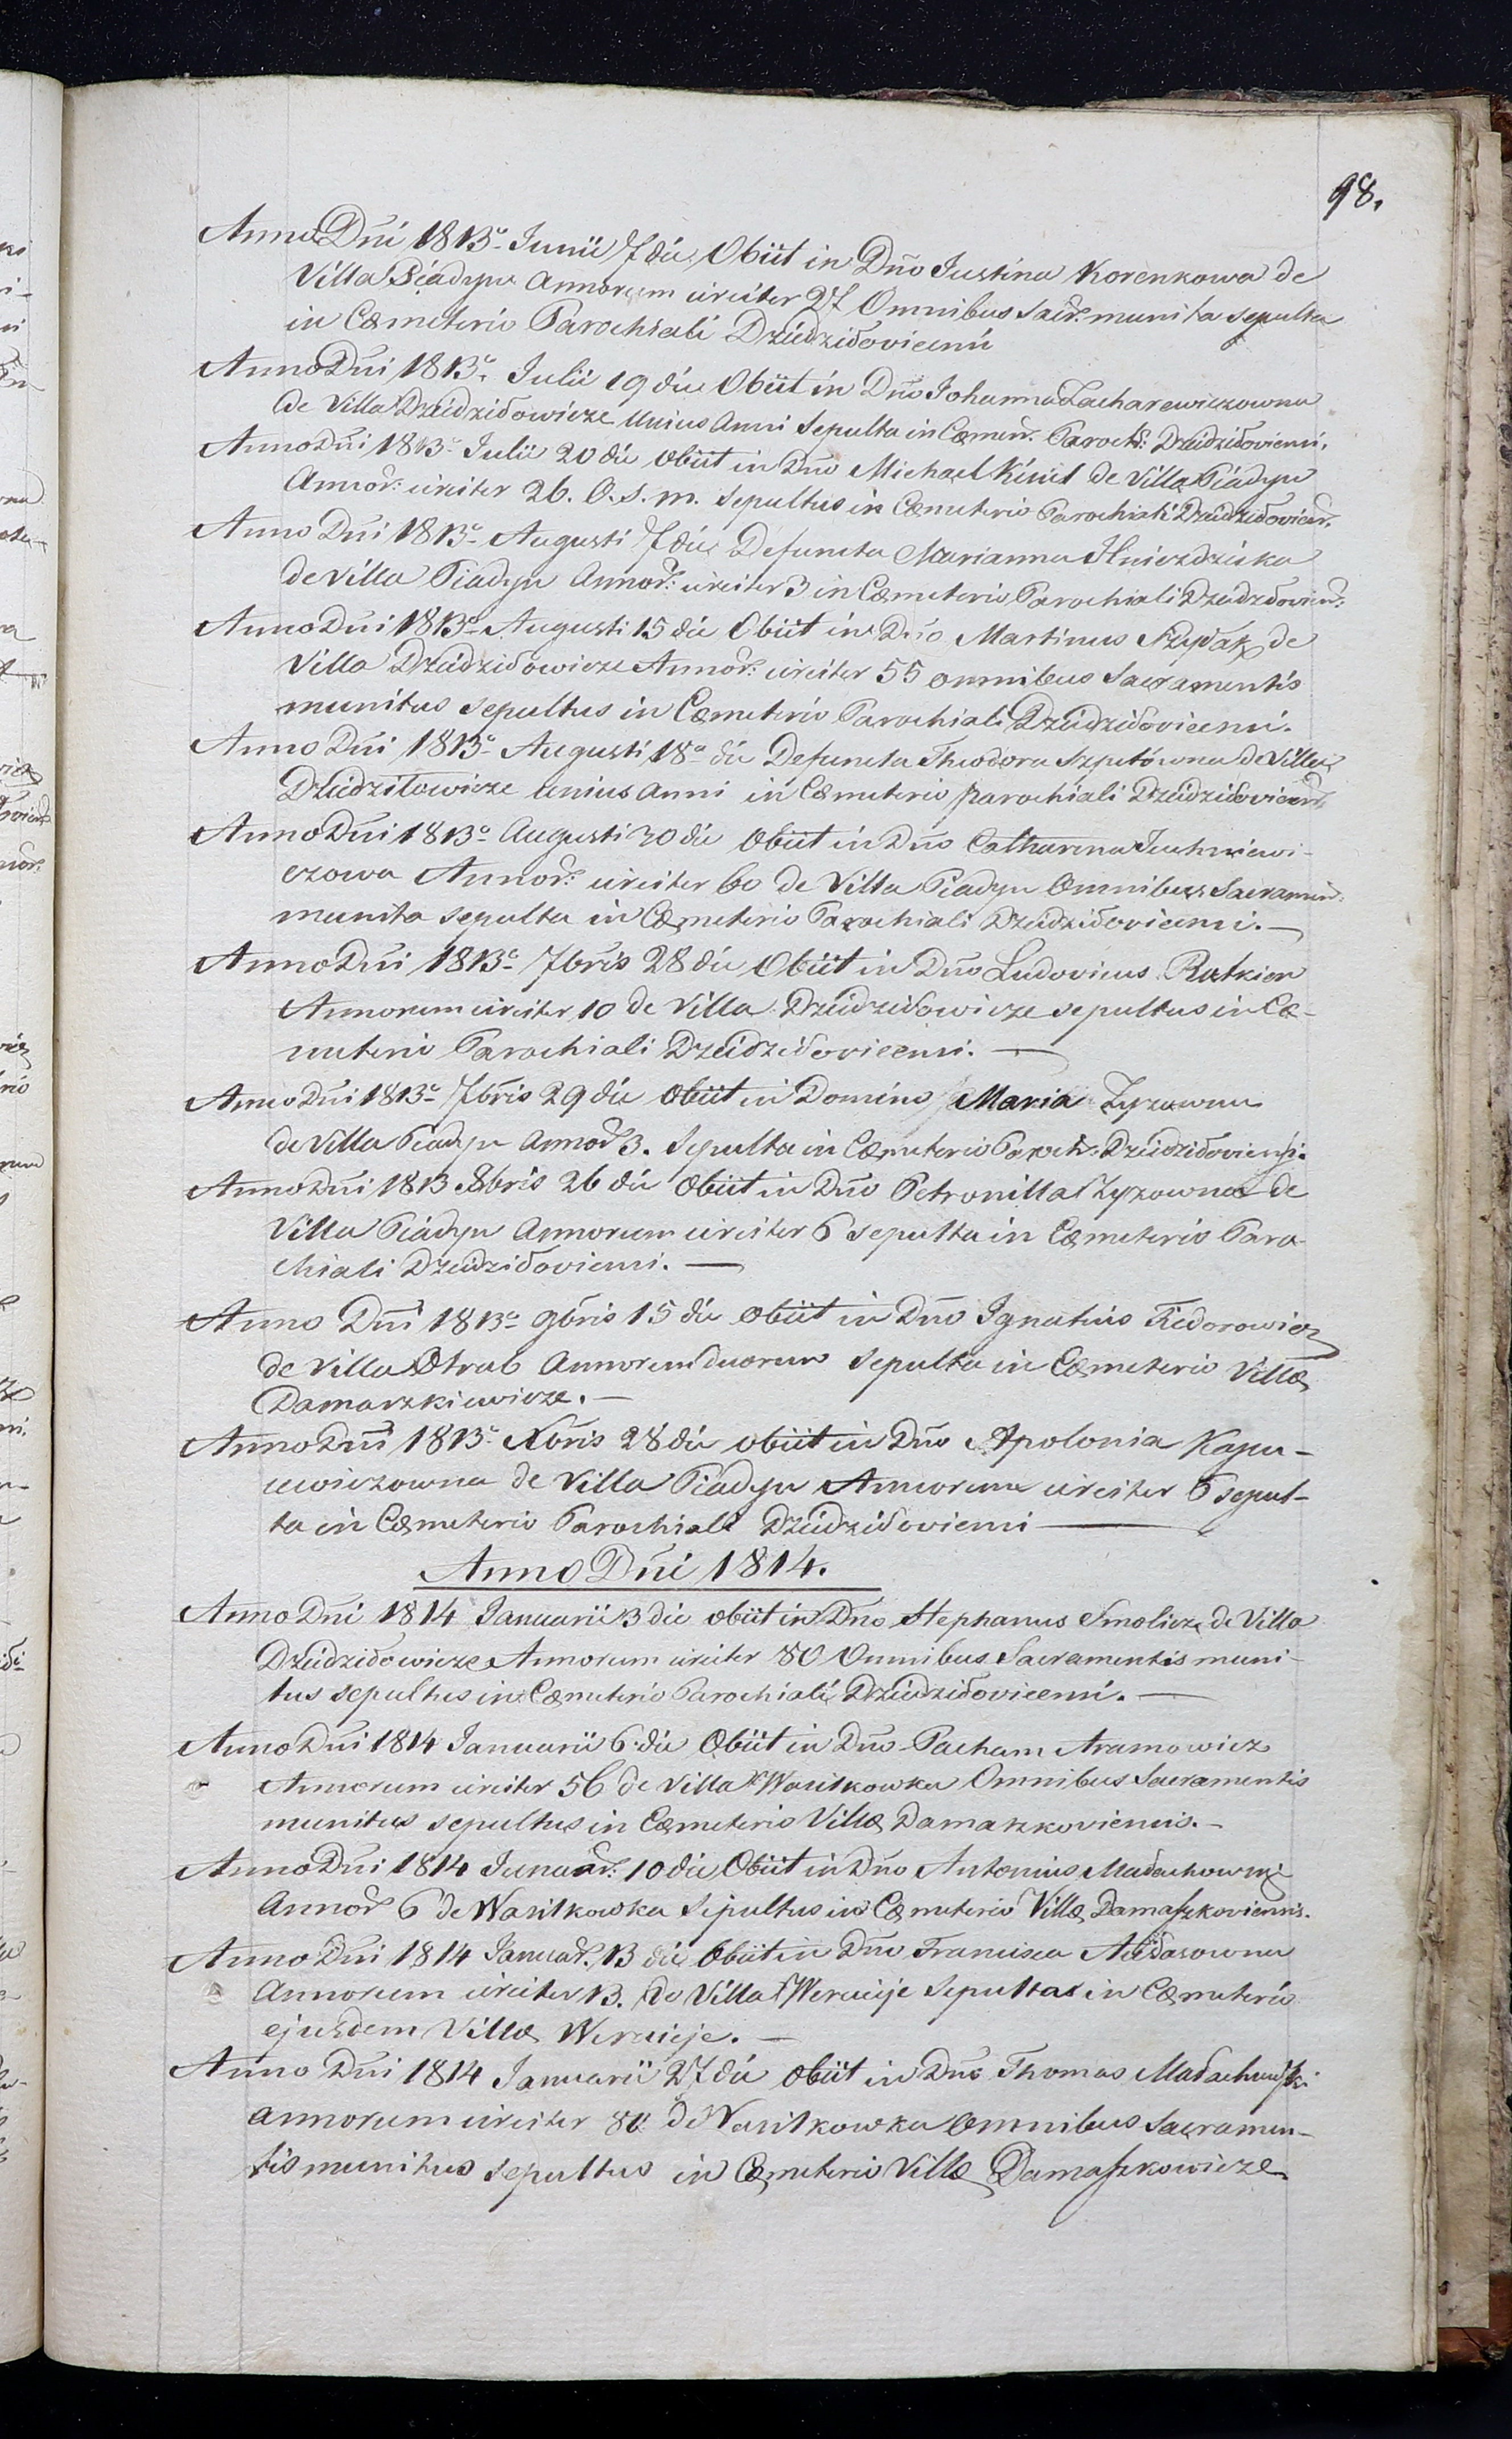 98.
Anno Dni 1813o Junii 7 die Obiit in Dno Justina Korenkowa de
Villa Piadyn Annorum circiter 27 Omnibus Sacr. munita sepulta
in Cœmeterio Parochiali Dziedzidoviceñsi
Anno Dni 1813o Julii 19 die Obiit in Dno Johanna Zacharewiczowna
de Villa Dziedzidowicze Unius Anni Sepulta in Cœmen. Paroch: Dziedzidovicensi.
Anno Dni 1813o Julii 20 die obiit in Dno Michael de Villa Piadyn
Annor: circiter 26. O. S. m. Sepultus in Cœmeterio Parochiali Dziedzidovicen.
Anno Dni 1813o Augusti 7 die Defuncta Marianna
de Villa Piadyn Annor: circiter 3 in Cœmeterio Parochiali Dziedzidovicen:
Anno Dni 1813o Augusti 15 die Obiit in Dno Martinus de
Villa Dziedzidowicze Annor: circiter 55 omnibus Sacramentis
munitus sepultus in Cœmeterio Parochiali Dziedzidovicensi.
Anno Dni 1813o Augusti 18a die Defuncta Theodora de Villa
Dziedzitowicze unius anni in Cœmeterio parochiali Dziedzidovicen
Anno Dni 1813o Augusti 30 die Obiit in Dno Catharina Juchniewi-
czowa Annor: circiter 60 de Villa Piadyn Omnibus Sacramen:
munita sepulta in Cœmeterio Parochiali Dziedzidovicensi. —
Anno Dni 1813o 7bris 28 die Obiit in Dno Ludovicus
Annorum circiter 10 de Villa Dziedzidowicze sepultus in Cœ-
meterio Parochiali Dziedzidovicensi. —
Anno Dni 1813o 7bris 29 die Obiit in Domino Maria Zyzowna
de Villa Piadyn Annor 3. Sepulta in Cœmeterio Paroch: Dziedzidoviensi.
Anno Dni 1813 8bris 26 die Obiit in Dno Petronilla Zyzowna de
Villa Piadyn Annorum circiter 6 sepulta in Cœmeterio Paro-
chiali Dziedzidoviensi. —
Anno Dni 1813o 9bris 15 die obiit in Dno Ignatius Fiedorowicz
de Villa Strub Annorum duorum sepulta in Cœmeterio Villæ
Damaszkiewicze. —
Anno Dni 1813o Xbris 28 die obiit in Dno Apolonia Kapu-
cewiczowna de Villa Piadyn Annorum circiter 6 sepul-
ta in Cœmeterio Parochiali Dziedzidoviensi —
Anno Dni 1814.
Anno Dni 1814 Januarii 3 die obiit in Dno Stephanus Smolicz de Villa
Dziedzidowicze Annorum circiter 80 Omnibus Sacramentis muni-
tus sepultus in Cœmeterio Parochiali Dziedzidovicensi. —
Anno Dni 1814 Januarii 6 die Obiit in Dno Pacham Aramowicz
Annorum circiter 56 de Villa Wasilkowka Omnibus Sacramentis
munitus sepultus in Cœmeterio Villæ Damaszkoviensis. —
Anno Dni 1814 Januar: 10 die Obiit in Dno Antonius Małachowski
Annor 6 de Wasilkowka Sepultus in Cœmeterio Villæ Damaszkoviensis.
Anno Dni 1814 Januar. 13 die Obiit in Dno Francisca
Annorum circiter 13. de Villa Wercieje Sepulta in Cœmeterio
ejusdem Villæ Wercieje. —
Anno Dni 1814 Januarii 27 die Obiit in Dno Thomas Małachowski
annorum circiter 80 de Wasilkowka Omnibus Sacramen-
tis munitus sepultus in Cœmeterio Villæ Damaszkowicze